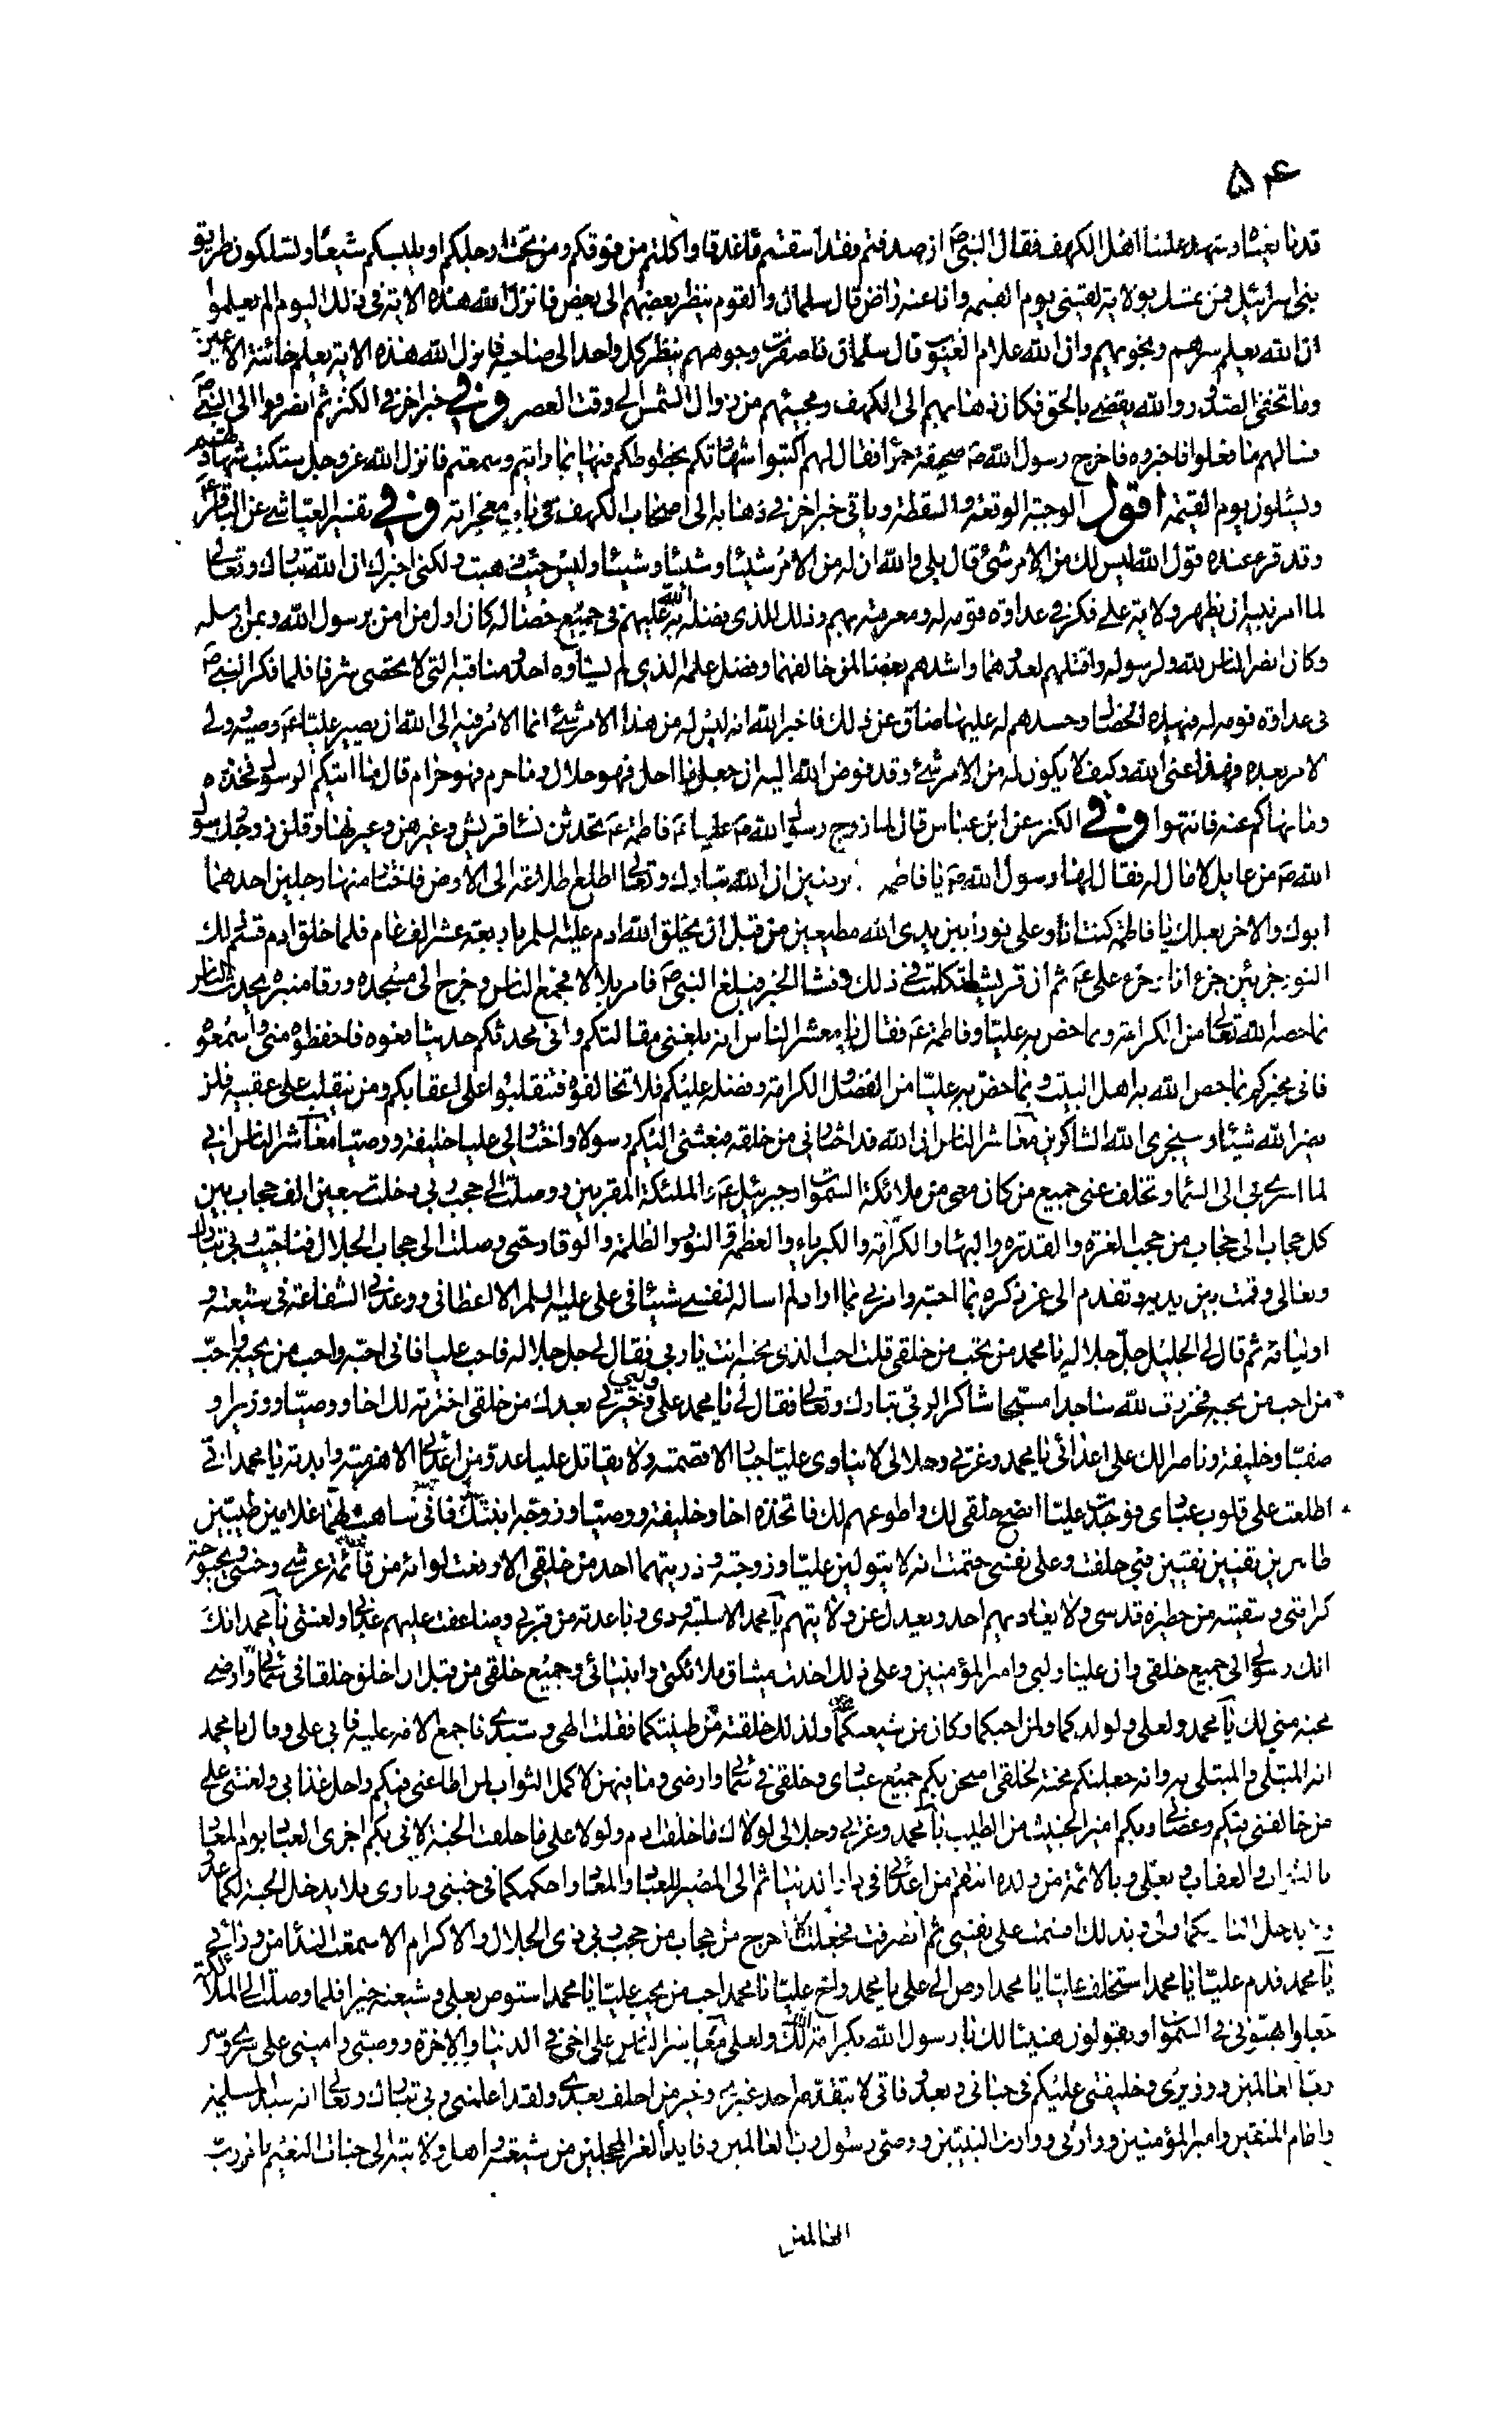 ۵۴
قدنا بعثنا وشهد علينا اهل الكهف فقال النبی ص ان صدقتم فقد اسقيتم ماء غدقا واكلتم من فوقكم ومن تحت ارجلكم او يلبسكم شيعا ولتسلكون طريق
بنی اسرائیل فمن تمسك بولایة لقینی یوم القیمه وانا عنه راض قال سلمان والقوم ینظر بعضهم الی بعض فانزل الله هذه الایة فی ذلك الیوم الم یعلموا
ان الله یعلم سرهم ونجویهم وان الله علام الغیوب قال سلمان فاصفرت وجوههم ینظر كل واحد الی صاحبه فانزل الله هذه الایة یعلم خائنة الاعین
وما تخفی الصدور والله یقضی بالحق فكان ذهابهم الی الكهف ومجیئهم من زوال الشمس الی وقت العصر وفی خبر اخر فی الكنز ثم انصرفوا الی النبی ص
فسالهم ما فعلوا فاخبروه فاخرج رسول الله ص صحیفة حمرا فقال لهم اكتبوا شهادتكم بخطوطكم فیها بما رایتم وسمعتم فانزل الله عز وجل ستكتب شهادتهم
ویسئلون یوم القیمة اقول الوجبة الوقعة والسقطة ویاتی خبر اخر فی ذهابه الی اصحاب الكهف فی باب معجزاته وفی تفسیر العیاشی عن الباقر ع
وقد قرء عنده قول الله لیس لك من الامر شئ قال بلی والله ان له من الامر شیئا وشیئا وشیئا ولیس حیث ذهبت ولكنی اخبرك ان الله تبارك وتعالی
لما امر نبیه ان یظهر ولایة علی فكر فی عداوة قومه له ومعرفته بهم وذلك للذی فضله الله به علیهم فی جمیع خصاله كان اول من امن برسول الله وبمن ارسله
وكان انصر الناس لله ولرسوله واقتلهم لعدوهما واشدهم بغضا لمن خالفهما وفضل علمه الذی لم یساوه احد ومناقبه التی لا تحصی شرفا فلما فكر النبی ص
فی عداوة قومه له فی هذه الخصال وحسدهم له علیها ضاق عن ذلك فاخبر الله انه لیس له من هذا الامر شئ انما الامر فیه الی الله ان یصیر علیا ع وصیه وولی
الامر بعده فهذا عنی الله وكیف لا یكون له من الامر شئ وقد فوض الله الیه ان جعل ما احل فهو حلال وما حرم فهو حرام قال ما اتیكم الرسول فخذوه
وما نهاكم عنه فانتهوا وفی الكنز عن ابن عباس قال لما زوج رسول الله ص علیا ع فاطمة ع تحدثن نسا قریش وغیرهن وعیرنها وقلن زوجك رسول
الله ص من عایل لا مال له فقال لها رسول الله ص یا فاطمه ترضین ان الله تبارك وتعالی اطلع اطلاعة الی الارض فاختار منها رجلین احدهما
ابوك والاخر بعلك یا فاطمة كنت انا وعلی نورا بین یدی الله مطیعین من قبل ان یخلق الله ادم علیه السلم باربعة عشر الف عام فلما خلق ادم قسم ذلك
النور جزئین جزء انا وجزء علی ع ثم ان قریشا تكلمت فی ذلك وفشا الخبر فبلغ النبی ص فامر بلالا فجمع الناس وخرج الی مسجده ورقا منبره یحدث الناس
بما خصه الله تعالی من الكرامة وبما خص به علیا وفاطمة ع فقال یا معشر الناس انه بلغنی مقالتكم وانی محدثكم حدیثا فعوه فاحفظوه منی واسمعوه
فانی مخبركم بما خص الله به اهل البیت وبما خص به علیا من الفضل والكرامة وفضله علیكم فلا تخالفوه فتنقلبوا علی اعقابكم ومن ینقلب علی عقبیه فلن
یضر الله شیئا وسیجزی الله الشاكرین معاشر الناس ان الله قد اختارنی من خلقه فبعثنی الیكم رسولا واختار لی علیا خلیفة ووصیا معاشر الناس انی
لما اسری بی الی السماء وتخلف عنی جمیع من كان معی من ملائكة السموات وجبرئیل ع والملئكة المقربین ووصلت الی حجب ربی دخلت سبعین الف حجاب بین
كل حجاب الی حجاب من حجب العزة والقدرة والبهاء والكرامة والكبریاء والعظمة والنور والظلمة والوقار حتی وصلت الی حجاب الجلال فناجیت ربی تبارك
وتعالی وقمت بین یدیه وتقدم الی عز ذكره بما احبه وامرنی بما اراد لم اساله لنفسی شیئا فی علی علیه السلم الا اعطانی ووعدنی الشفاعة فی شیعته و
اولیائه ثم قال لی الجلیل جل جلاله یا محمد من تحب من خلقی قلت احب الذی تحبه انت یا ربی فقال لی جل جلاله فاحب علیا فانی احبه واحب من یحبه واحب
من احب من یحبه فخررت لله ساجدا مسبحا شاكرا لربی تبارك وتعالی فقال لی یا محمد علی ولیی وخیرتی بعدك من خلقی اخترته لك اخا ووصیا ووزیرا و
صفیا وخلیفة وناصرا لك علی اعدائی یا محمد وعزتی وجلالی لا یناوی علیا جبار الا قصمته ولا یقاتل علیا عدو من اعدائی الا هزمته وابدته یا محمد انی
اطلعت علی قلوب عبادی فوجدت علیا انصح خلقی لك واطوعهم لك فاتخذه اخا وخلیفة ووصیا وزوجه ابنتك فانی ساهب لهما غلامین طیبین
طاهرین تقیین نقیین فبی حلفت وعلی نفسی حتمت انه لا یتولین علیا وزوجته وذریتهما احد من خلقی الا رفعت لوائه من قائمة عرشی وجنتی وبحبوحة
كرامتی وسقیته من حظیرة قدسی ولا یعادیهم احد ویعدل عن ولایتهم یا محمد الا سلبته ودی وباعدته من قربی وضاعفت علیهم عذابی ولعنتی یا محمد انك
انك رسولی الی جمیع خلقی وان علیا ولیی وامیر المؤمنین وعلی ذلك اخذت میثاق ملائكتی وانبیائی وجمیع خلقی من قبل ان اخلق خلقا فی سمائی وارضی
محبة منی لك یا محمد ولعلی ولولدكما ولمن احبكما وكان من شیعتكما ولذلك خلقته من طینتكما فقلت الهی وسیدی فاجمع الامة علیه فابی علی وقال یا محمد
انه المبتلی والمبتلی به وانی جعلتكم محنة لخلقی امتحن بكم جمیع عبادی وخلقی فی سمائی وارضی وما فیهن لاكمل الثواب لمن اطاعنی فیكم واحل عذابی ولعنتی علی
من خالفنی فیكم وعصانی وبكم امیز الخبیث من الطیب یا محمد وعزتی وجلالی لولاك ما خلقت ادم ولولا علی ما خلقت الجنة لانی بكم اجزی العباد یوم المعاد
بالثواب والعقاب وبعلی وبالائمة من ولده انتقم من اعدائی فی دار الدنیا ثم الی المصیر للعباد والمعاد واحكمكما فی جنتی وناری فلا یدخل الجنة لكما عدو
ولا یدخل النار لكما ولی وبذلك اقسمت علی نفسی ثم انصرفت فجعلت لا اخرج من حجاب من حجب ربی ذی الجلال والاكرام الا سمعت النداء من ورائی
یا محمد قدم علیا یا محمد استخلف علیا یا محمد اوص الی علی یا محمد واخ علیا یا محمد احب من یحب علیا یا محمد استوص بعلی وشیعته خیرا فلما وصلت الی الملائكة
جعلوا یهنونی فی السموات ویقولون هنیئا لك یا رسول الله بكرامة الله لك ولعلی معاشر الناس علی اخی فی الدنیا والاخرة ووصیی وامینی علی سری وسر
رب العالمین ووزیری وخلیفتی علیكم فی حیاتی وبعد وفاتی لا یتقدمه احد غیری وخیر من اخلف بعدی ولقد اعلمنی ربی تبارك وتعالی انه سید المسلمین
وامام المتقین وامیر المؤمنین ووارثی ووارث النبیین ووصی رسول رب العالمین وقاید الغر المحجلین من شیعته واهل ولایته الی جنات النعیم بامر رب
العالمین